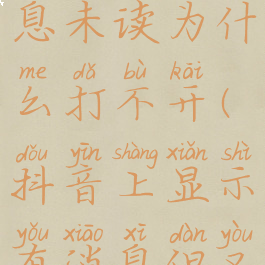 息未读为什
me dǎ bù kāi
么打不开(
dǒu yīn shàng xiǎn shì
抖音上显示
yǒu xiāo xī dàn yòu
有消息但又